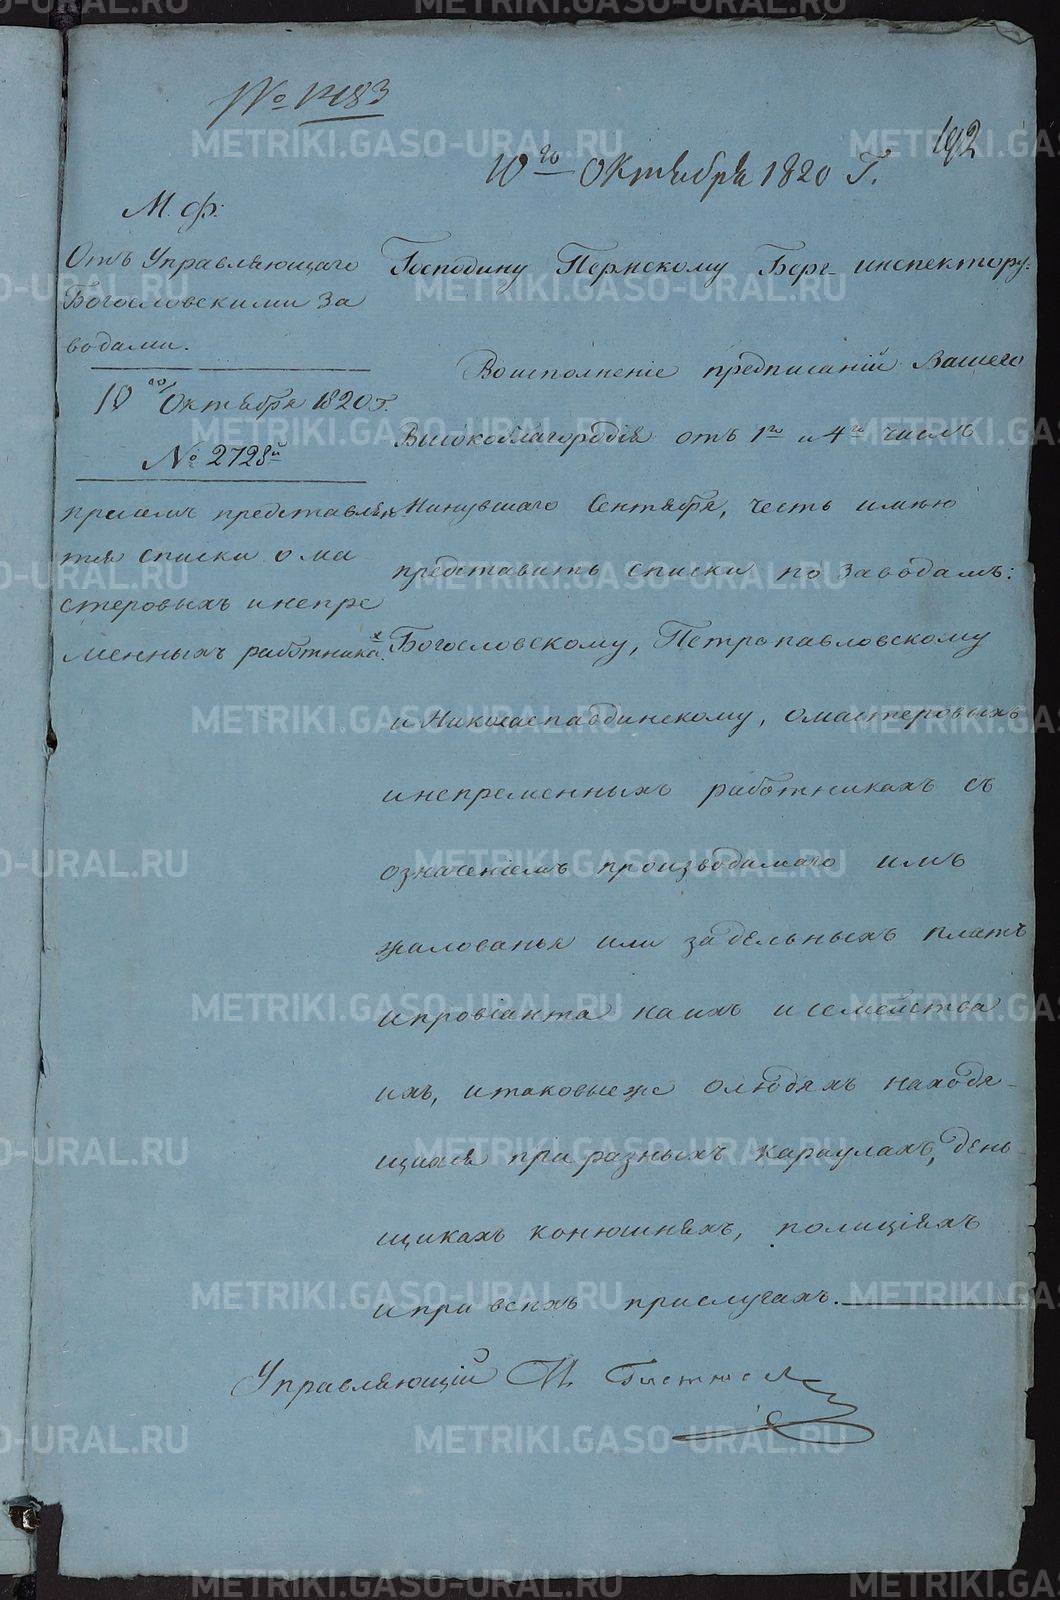 № 17183
192
10го Октября 1820 Г.
М. Ф.
Отъ Управляющаго
Богословскими За
водами.
10го Октября 1820 г.
№ 2728й
присемъ представлен
тся списки о ма
стеровыхъ и непре
менныхъ работникахъ.
Господину Пермскому Берг-инспектору:
Во исполненіе предписаній Вашего
Высокоблагородія отъ 1го и 4го числъ
минувшаго Сентября, честь имею
представить списки по Заводамъ:
Богословскому, Петропавловскому
и Николаепавдинскому, о мастеровыхъ
и непременныхъ работникахъ съ
означеніемъ производимаго имъ
жалованья или задельныхъ платъ
и провіанта на ихъ и семейства
ихъ, и таковые же о людяхъ находя-
щихся при разныхъ караулахъ, день-
щикахъ конюшняхъ, полиціяхъ
и при всехъ прислугахъ.
Управляющій
METRIKI.GASO-URAL.RU